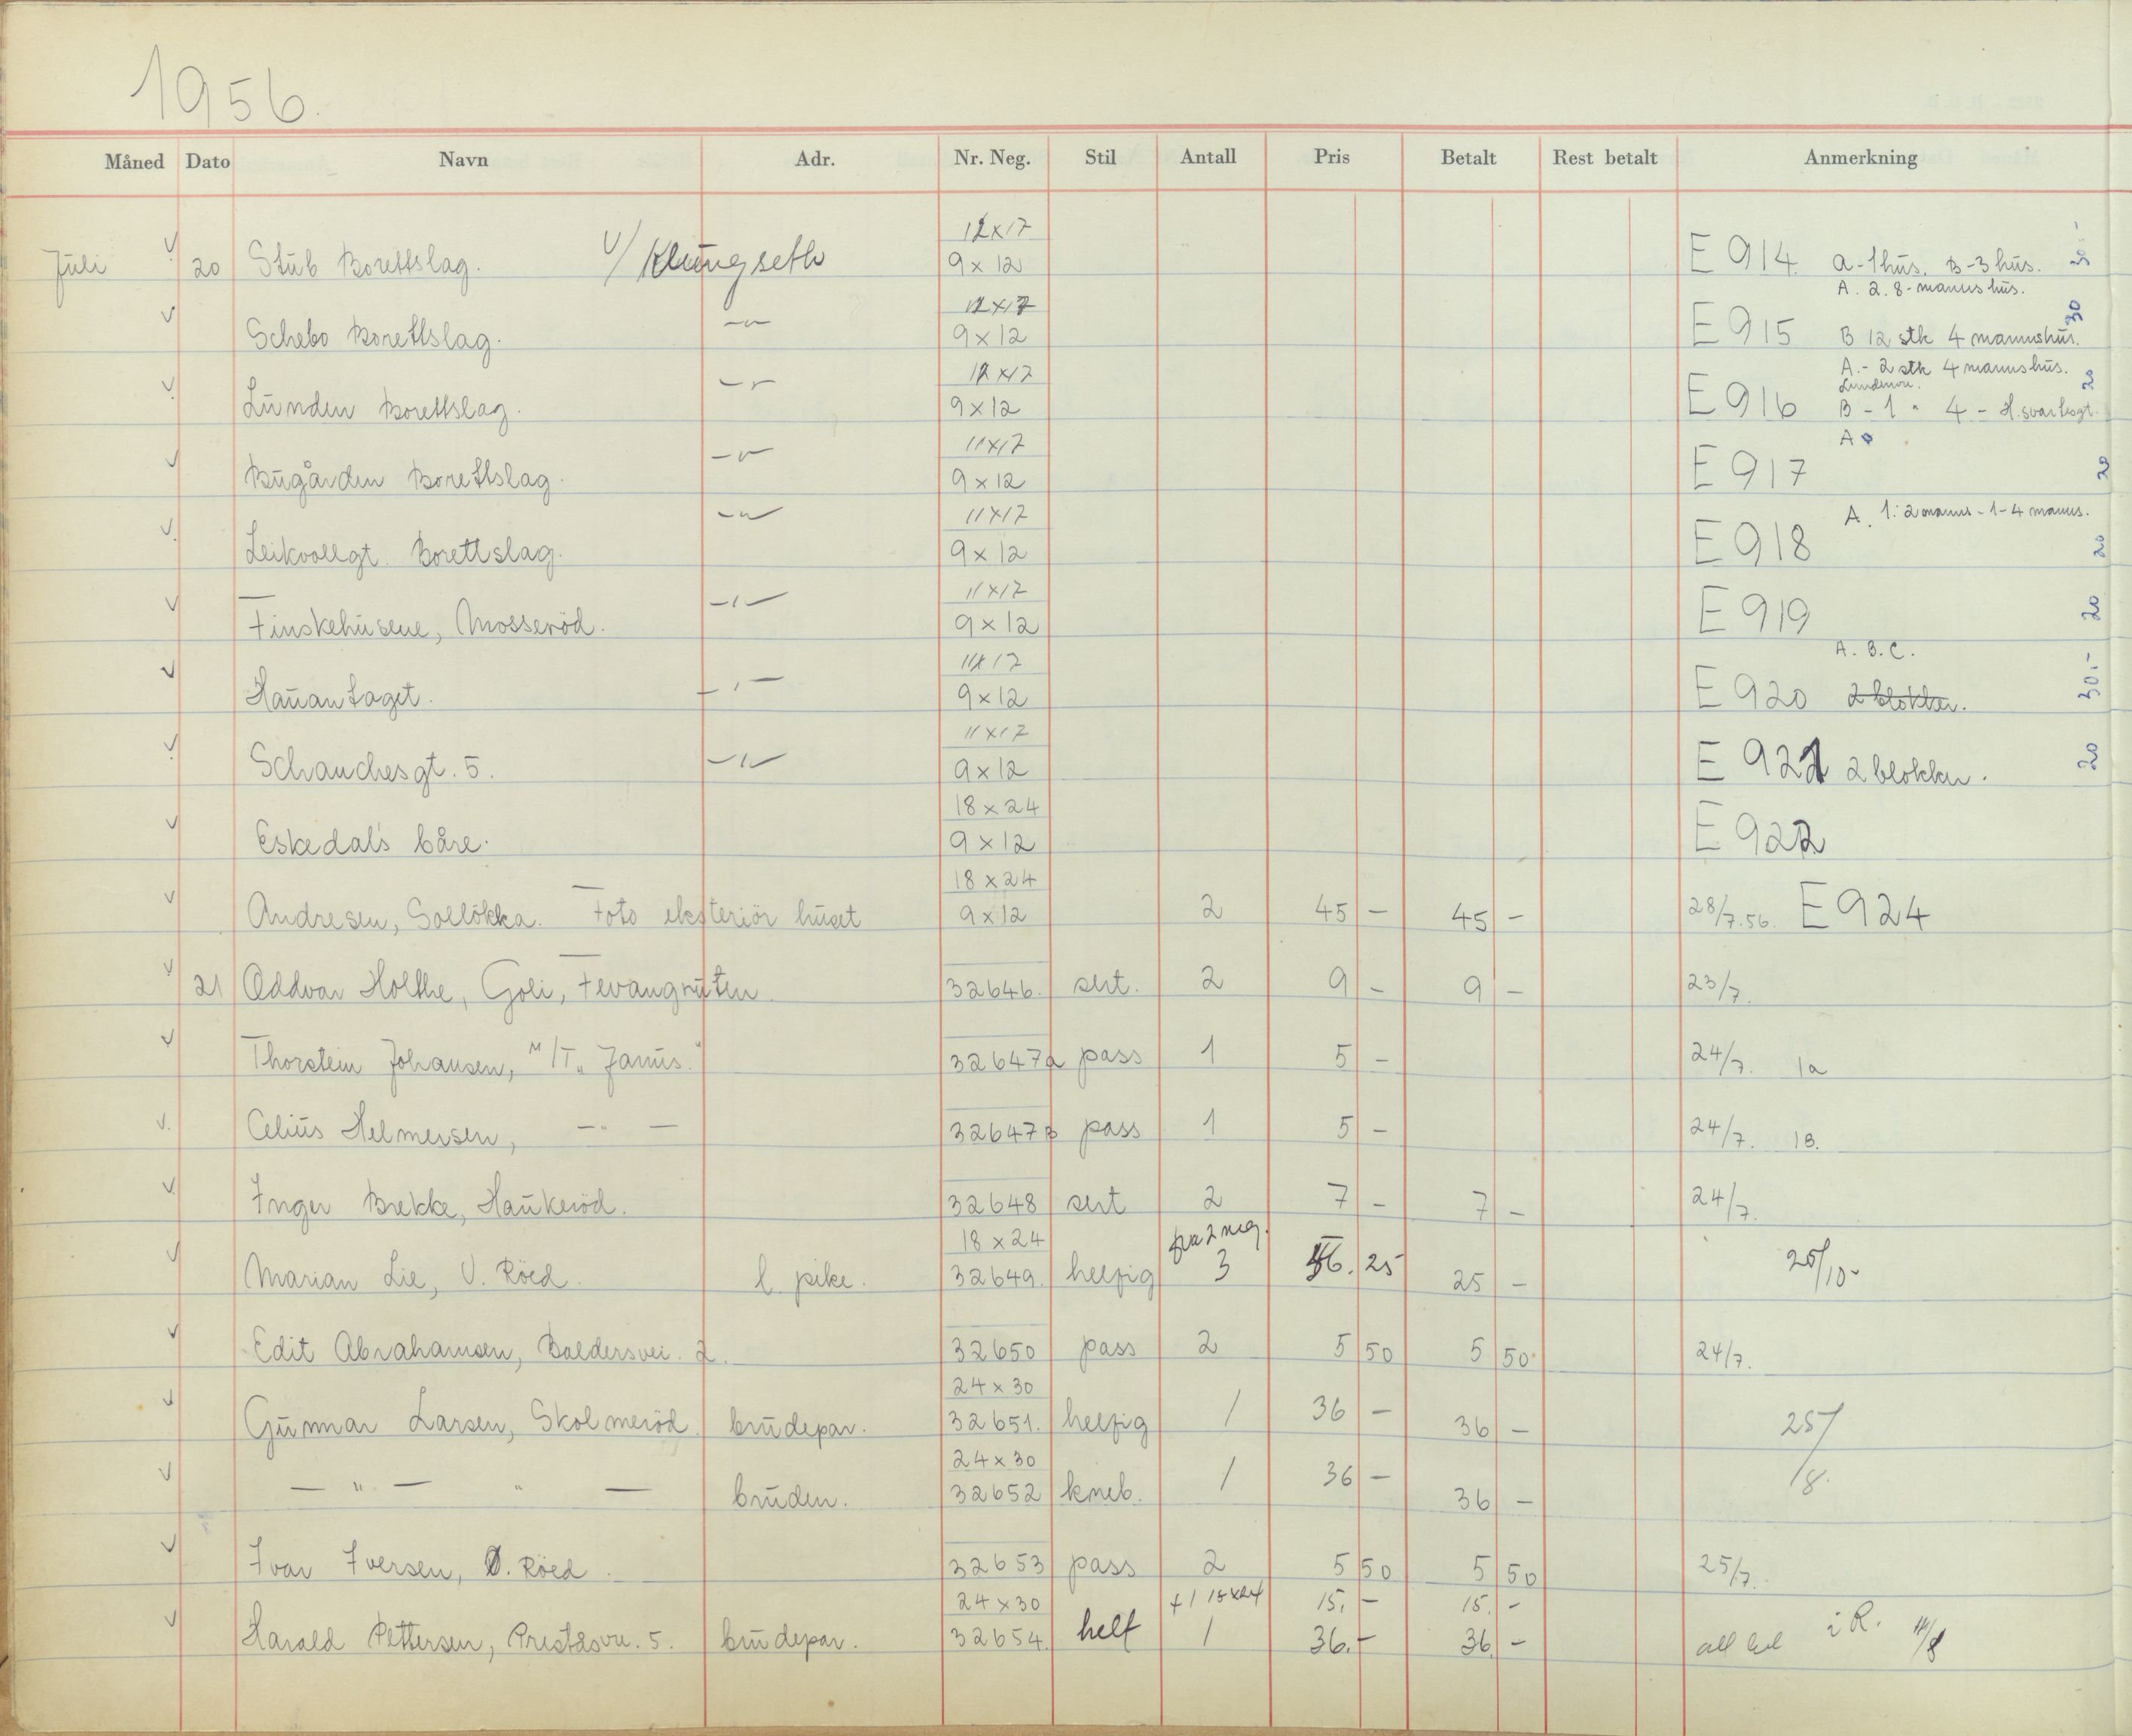 1956.
Måned Dato Navn Adr. Nr. Neg. Stil Antall Pris Betalt Rest betalt Anmerkning
12x17
Juli v 20 Stub Borettslag. v/ Klungseth 9x12 E 914. A-1 hus. B-3 hus. 30.-
12x17 A. 2. 8-manns hus.
v Schebo Borettslag. -"- 9x12 E 915 B 12 stk 4 mannshus. 30
12x17 A.- 2 stk 4 manns hus.
v Lunden Borettslag. -"- 9x12 E 916 B - 1 " 4 - H. svartesgt. 20
11x17 A
v Bugården Borettslag. -"- 9x12 E 917 20
11x17 A. 1: 2 manns - 1-4 manns.
v Leikvollgt. Borettslag. -"- 9x12 E 918 20
11x17
v Finskehusene, Mosseröd. -"- 9x12 E 919 20
11x17 A. B. C.
v Hauan Laget. -"- 9x12 E 920 2 blokker. 30.-
11x17
v Schanchesgt. 5. -"- 9x12 E 921 2 blokker. 20
18x24
v Eskedal's båre. 9x12 E 922
18x24
v Andresen, Solløkka. Foto eksteriör huset 9x12 2 45 - 45 - 28/7.56. E 924
v 21 Oddvar Holthe, Goli, Fevangruten 32646. sert. 2 9 - 9 - 23/7.
v Thorstein Johansen, M/T "Janus." 32647a pass 1 5 - 24/7. 1a
v. Celius Helmersen, -"- 32647B pass 1 5 - 24/7. 1B.
v Inger Brekke, Haukeröd. 32648 sert 2 7 - 7 - 24/7.
18x24 fra 2 neg.
v Marian Lie, V. Röed. l. pike. 32649. helfig 3 46. 25 25 - 25/10-
v Edit Abrahamsen, Baldersvei. 2. 32650 pass 2 5 50 5 50 24/7.
24x30
v Gunnar Larsen, Skolmeröd. brudepar. 32651. helfig 1 36 - 36 - 25/8.
24x30
v - " - " - bruden. 32652 kneb. 1 36 - 36 -
v Ivar Iversen, Ö. Röed. 32653 pass 2 5 50 5 50 25/7.
24x30 + 1 18x24 15, - 15. -
v Harald Pettersen, Preståsvn. 5. brudepar. 32654. helf 1 36.- 36. - i R. 14/8